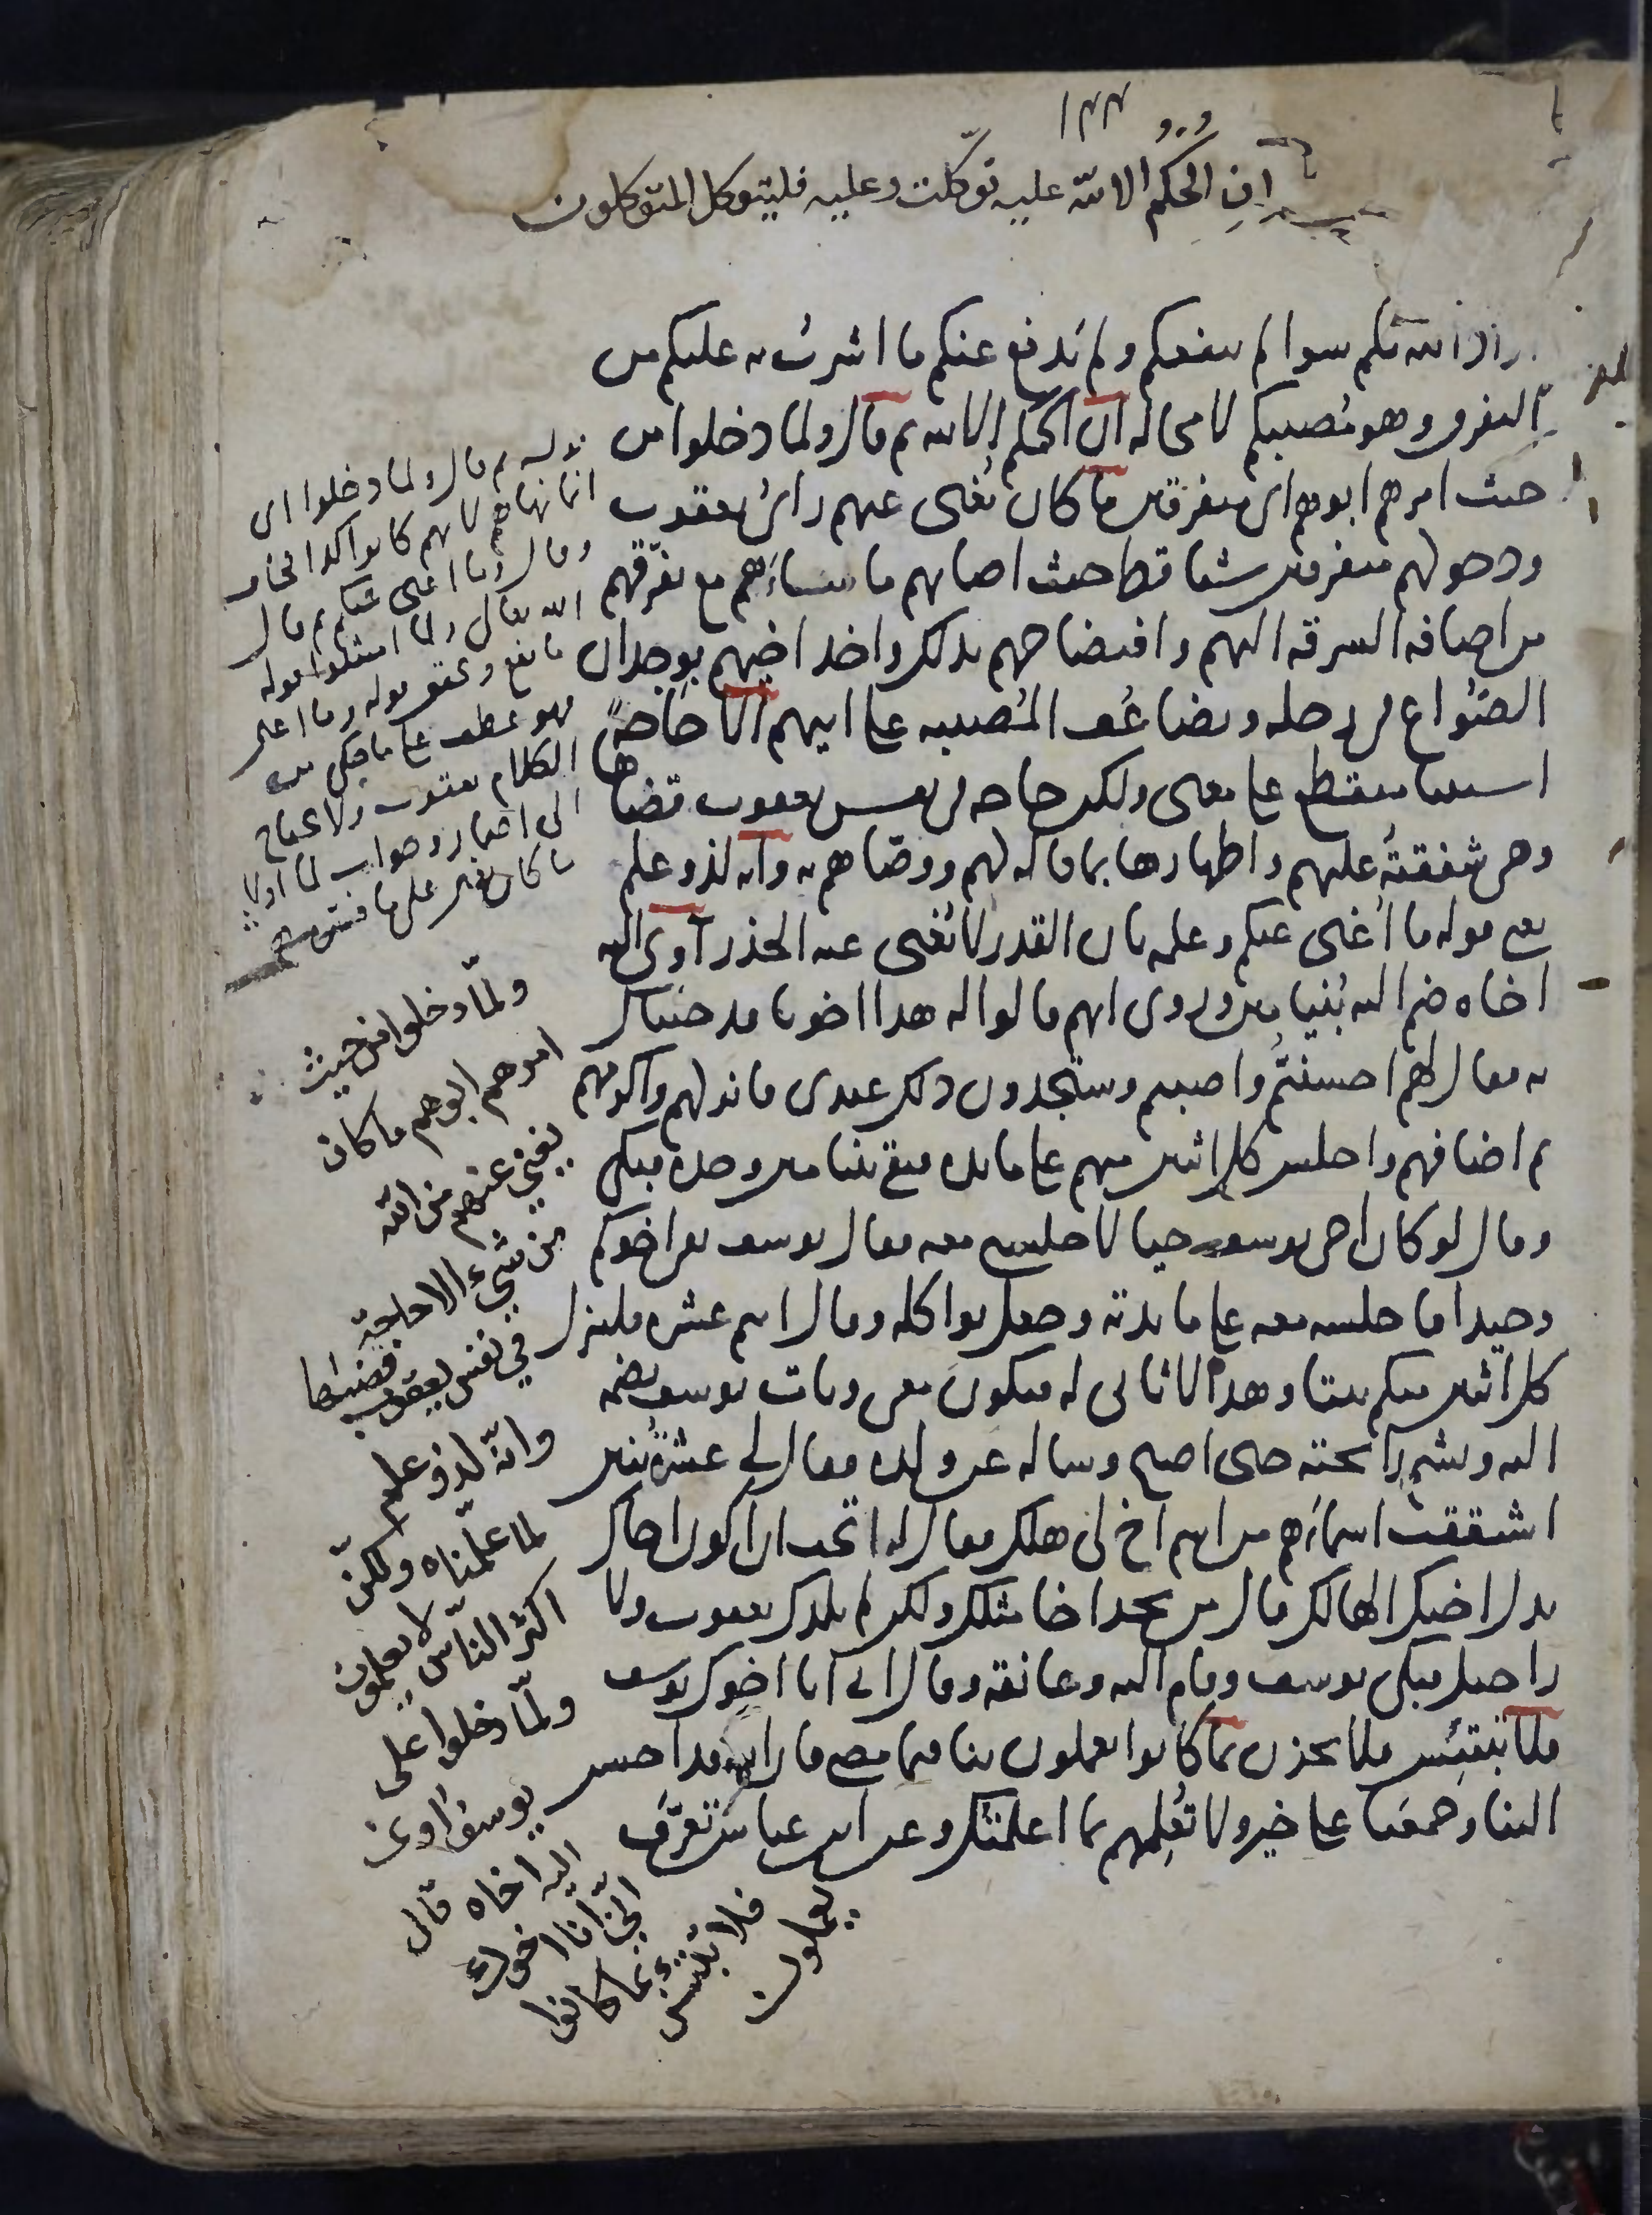 ١٤٤
ان الحكم الا لله عليه توكلت وعليه فليتوكل المتوكلون
اراد الله بكم سوا لم ينفعكم ولم يدفع عنكم ما اشرت به عليكم من
التفرق وهو مصيبكم لا محاله ان الحكم الا لله ثم قال ولما دخلوا من
حيث امرهم ابوهم اي متفرقين ما كان يغنى عنهم راى يعقوب
ودخولهم متفرقين شيا قط حيث اصابهم ما ساءهم مع تفرقهم
من اضافه السرقه اليهم وافتضاحهم بذلك واخذ اخيهم بوجدان
الصواع في رحله وتضاعف المصيبه على ابيهم الا حاجة
استثنا منقطع على معنى ولكن حاجه في نفس يعقوب قضاها
وهي شفقته عليهم واظهارها بما قاله لهم ووصاهم به وانه لذو علم
يعنى قوله ما اغنى عنكم وعلمه بان القدر لا يغنى عنه الحذر آوى اليه
اخاه ضم اليه بنيامين وروى انهم قالوا له هدا اخونا قد جئناك
به فقال لهم احسنتم واصبتم وستجدون دلك عندى فانزلهم واكرمهم
ثم اضافهم واجلس كل اثنين منهم على مايده فبقى بنيامين وحده فبكى
وقال لو كان اخى يوسف حيا لاجلسنى معه فقال يوسف بقى اخوكم
وحيدا فاجلسه معه على مايدته وجعل يواكله وقال انتم عشره فلينزل
كل اثنين منكم بيتا وهذا لا ثانى له فيكون معى وبات يوسف يضمه
اليه ويشم رايحته حتى اصبح وساله عن ولده فقال لي عشرة بنين
اشتققت اسماءهم من اسم اخ لى هلك فقال له اتحب ان اكون اخاك
بدل اخيك الهالك قال من يجد اخا مثلك ولكن لم يلدك يعقوب ولا
راحيل فبكى يوسف وقام اليه وعانقه وقال اني انا اخوك يوسف
فلا تبتئس فلا تحزن بما كانوا يعملون بنا فيما مضى فان الله قد احسن
الينا وجمعنا على خير ولا تعلمهم بما اعلمتك وعن ابن عباس تعرف
قوله ثم قال ولما دخلوا اى
الله تعالى ولما امتثلوا قوله
ولمّا دخلوا من حيث
امرهم ابوهم ما كان
يغني عنهم من الله
من شيء الا حاجة
في نفس يعقوب قضيها
وانّه لذو علم
لما علّمناه ولكنّ
اكثر الناس لا يعلمون
ولمّا دخلوا على
يوسف اوى
اليه اخاه قال
انّي انا اخوك
فلا تبتئس بما كانوا
يعملون